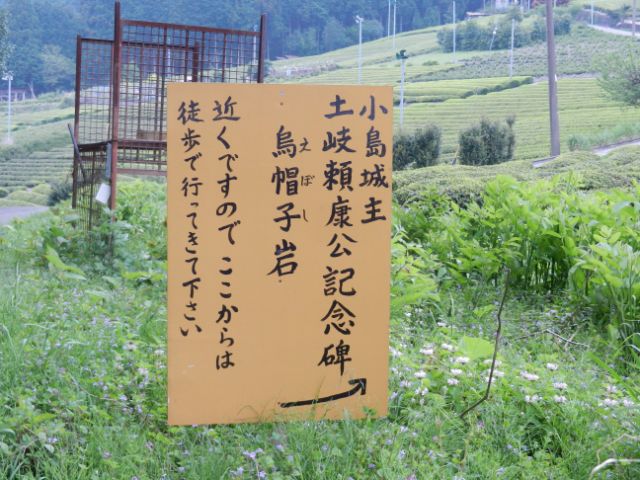 小島城主
土岐頼康公記念碑
烏帽子岩
えぼし
近くですので ここからは
徒歩で行ってきて下さい